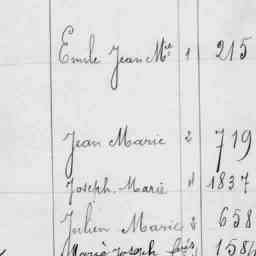 Emile Jean Mie 1 215
Jean Marie 2 719
Joseph Marie 1837
Julien Marie 658
Marie Joseph